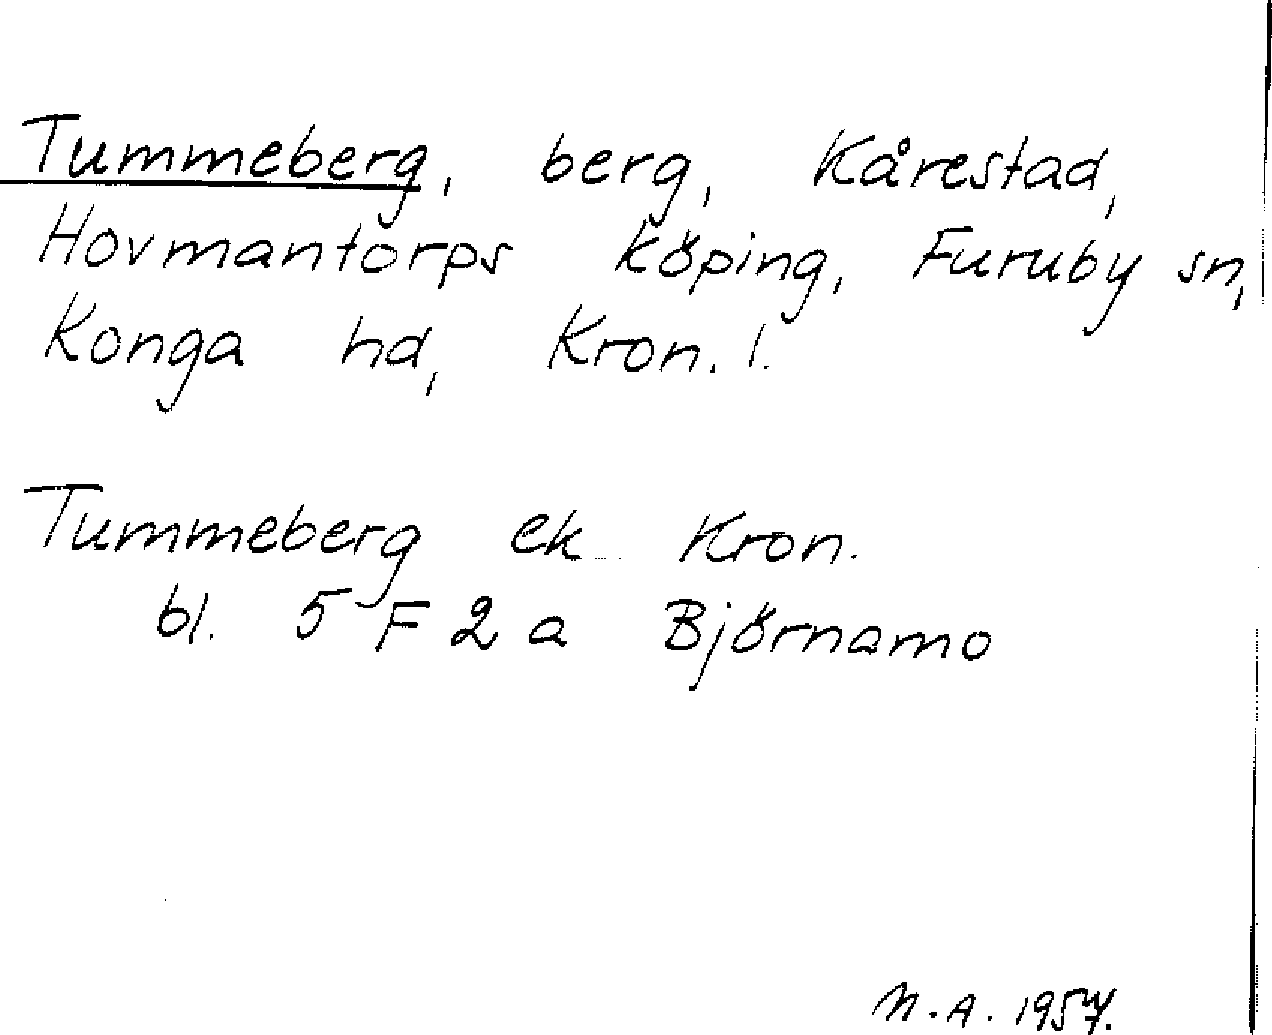 Tummeberg, berg, Kårestad,
Hovmantorps köping, Furuby sn,
Konga hd, Kron. l.
Tummeberg ek Kron.
bl. 5 F 2 a Björnamo
M.A. 1957.